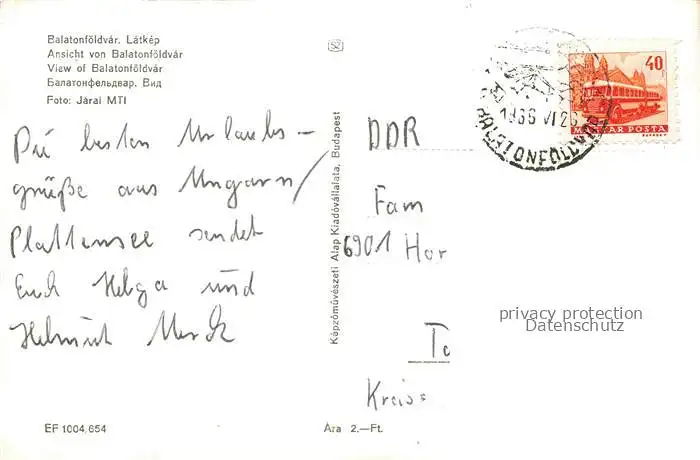 Balatonföldvár. Látkép
Ansicht von Balatonföldvár
View of Balatonföldvár
Балатонфельдвар. Вид
Foto: Járai MTI
Die besten Urlaubs-
grüße aus Ungarn/
Plattensee sendet
Euch Helga und
Helmut
EF 1004/654
Képzőművészeti Alap Kiadóvállalata, Budapest
Ára 2.—Ft.
DDR
Fam
6901 Hor
Kreis
40
MAGYAR POSTA
BALATONFÖLDVÁR
privacy protection
Datenschutz